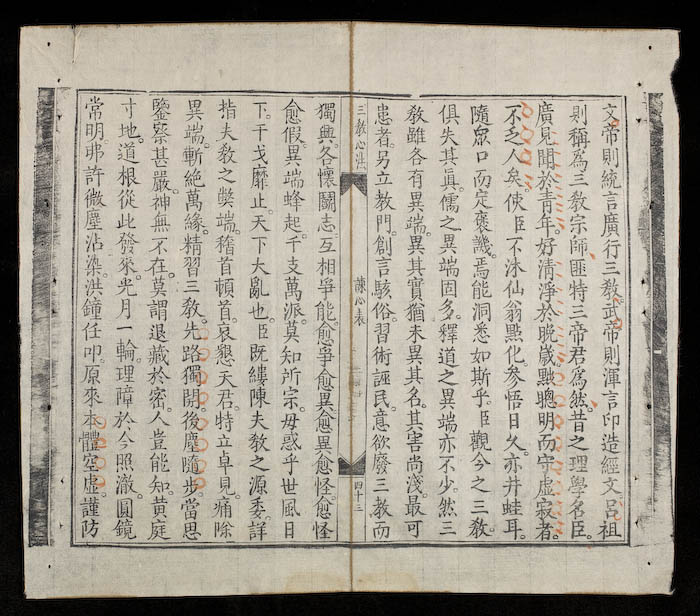 文帝則統言廣行三敎。武帝則渾言印造經文。呂祖
則稱爲三敎宗師。匪特三帝君爲然。昔之理學名臣。
廣見聞於靑年。好清淨於晚歲。黜聰明而守虛寂者。
不乏人矣。使臣不沐仙翁點化。參悟日久。亦井蛙耳。
隨衆口而定褒譏。焉能洞悉如斯乎。臣觀今之三敎。
俱失其眞。儒之異端固多。釋道之異端亦不少。然三
敎雖各有異端。異其實猶未異其名。其害尚淺。最可
患者。另立敎門。創言駭俗。習術誣民。意欲廢三敎而
三敎心法
諫心表
四十三
獨興。各懷鬭志。互相爭能。愈爭愈異。愈異愈怪。愈怪
愈假。異端蜂起。千支萬派。莫知所宗。毋惑乎世風日
下。干戈靡止。天下大亂也。臣既縷陳夫敎之源委。詳
指夫敎之獘端。稽首頓首。哀懇天君。特立卓見。痛除
異端。斬絶萬緣。精習三敎。先路獨開。後塵隨步。當思
鑒察甚嚴。神無不在。莫謂退藏於密。人豈能知。黄庭
寸地。道根從此發來。光月一輪。理障於今照澈。圓鏡
常明。弗許微塵沾染。洪鐘任叩。原來本體空虛。謹防